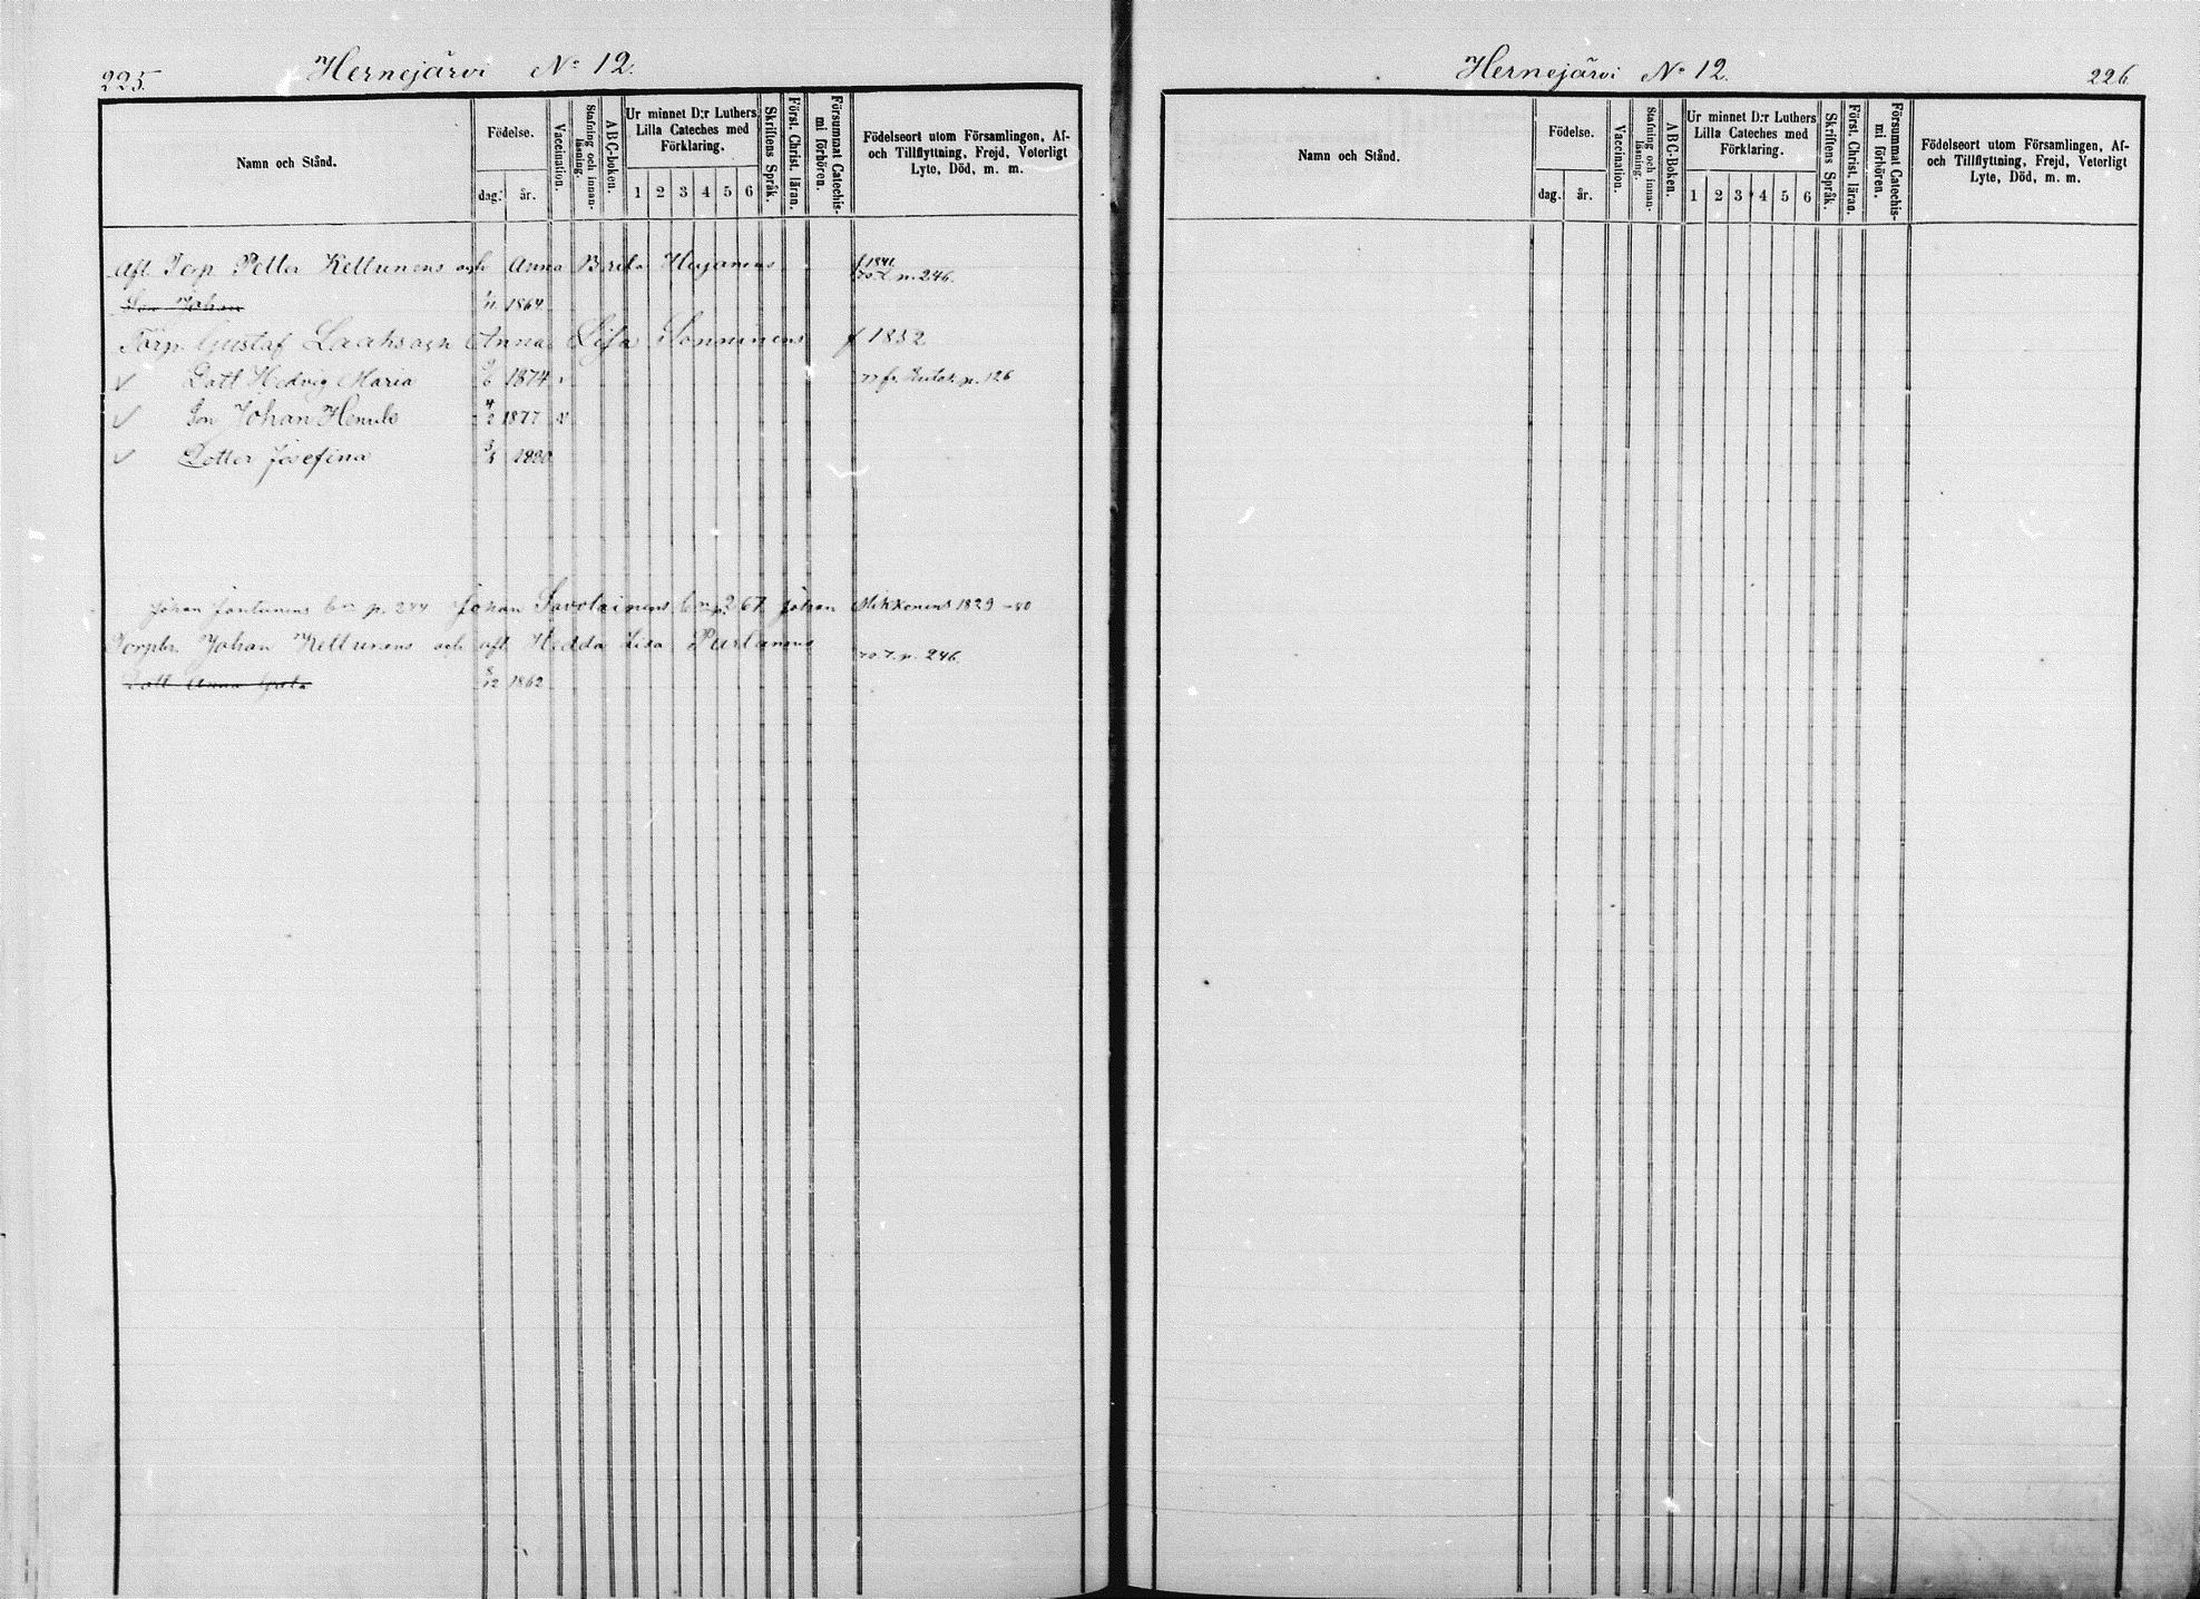 225. Hernejärvi No 12.
Namn och Stånd.
Födelse.
dag. år.
Vaccination.
Stafning och innanläsning.
ABC-boken.
Ur minnet D:r Luthers Lilla Cateches med Förklaring.
1 2 3 4 5 6
Skriftens Språk.
Först. Christ. läran.
Försummat Catechismi förhören.
Födelseort utom Församlingen, Af- och Tillflyttning, Frejd, Veterligt Lyte, Död, m. m.
Afl. Torp. Petter Kettunens och Anna Brita f 1841
p. 246.
Son Johan 1/11 1864
Torp. Gustaf Laahs och Anna Lisa f 1832
Dott Hedvig Maria 1874 77 fr. p. 126
Son Johan 4/2 1877 v
Dotter Josefina 1880
Johan p. 244 Johan Savolainens p. 267 Johan Mikkonens 1829-80
Torpln. Johan Kettunens och afl. Hedda Lisa Purtanens p. 246.
Dott Anna Greta 12 1862
Hernejärvi No 12. 226
Namn och Stånd.
Födelse.
dag. år.
Vaccination.
Stafning och innanläsning.
ABC-Boken.
Ur minnet D:r Luthers Lilla Cateches med Förklaring.
1 2 3 4 5 6
Skriftens Språk.
Först. Christ. läran.
Försummat Catechismi förhören.
Födelseort utom Församlingen, Af- och Tillflyttning, Frejd, Veterligt Lyte, Död, m. m.